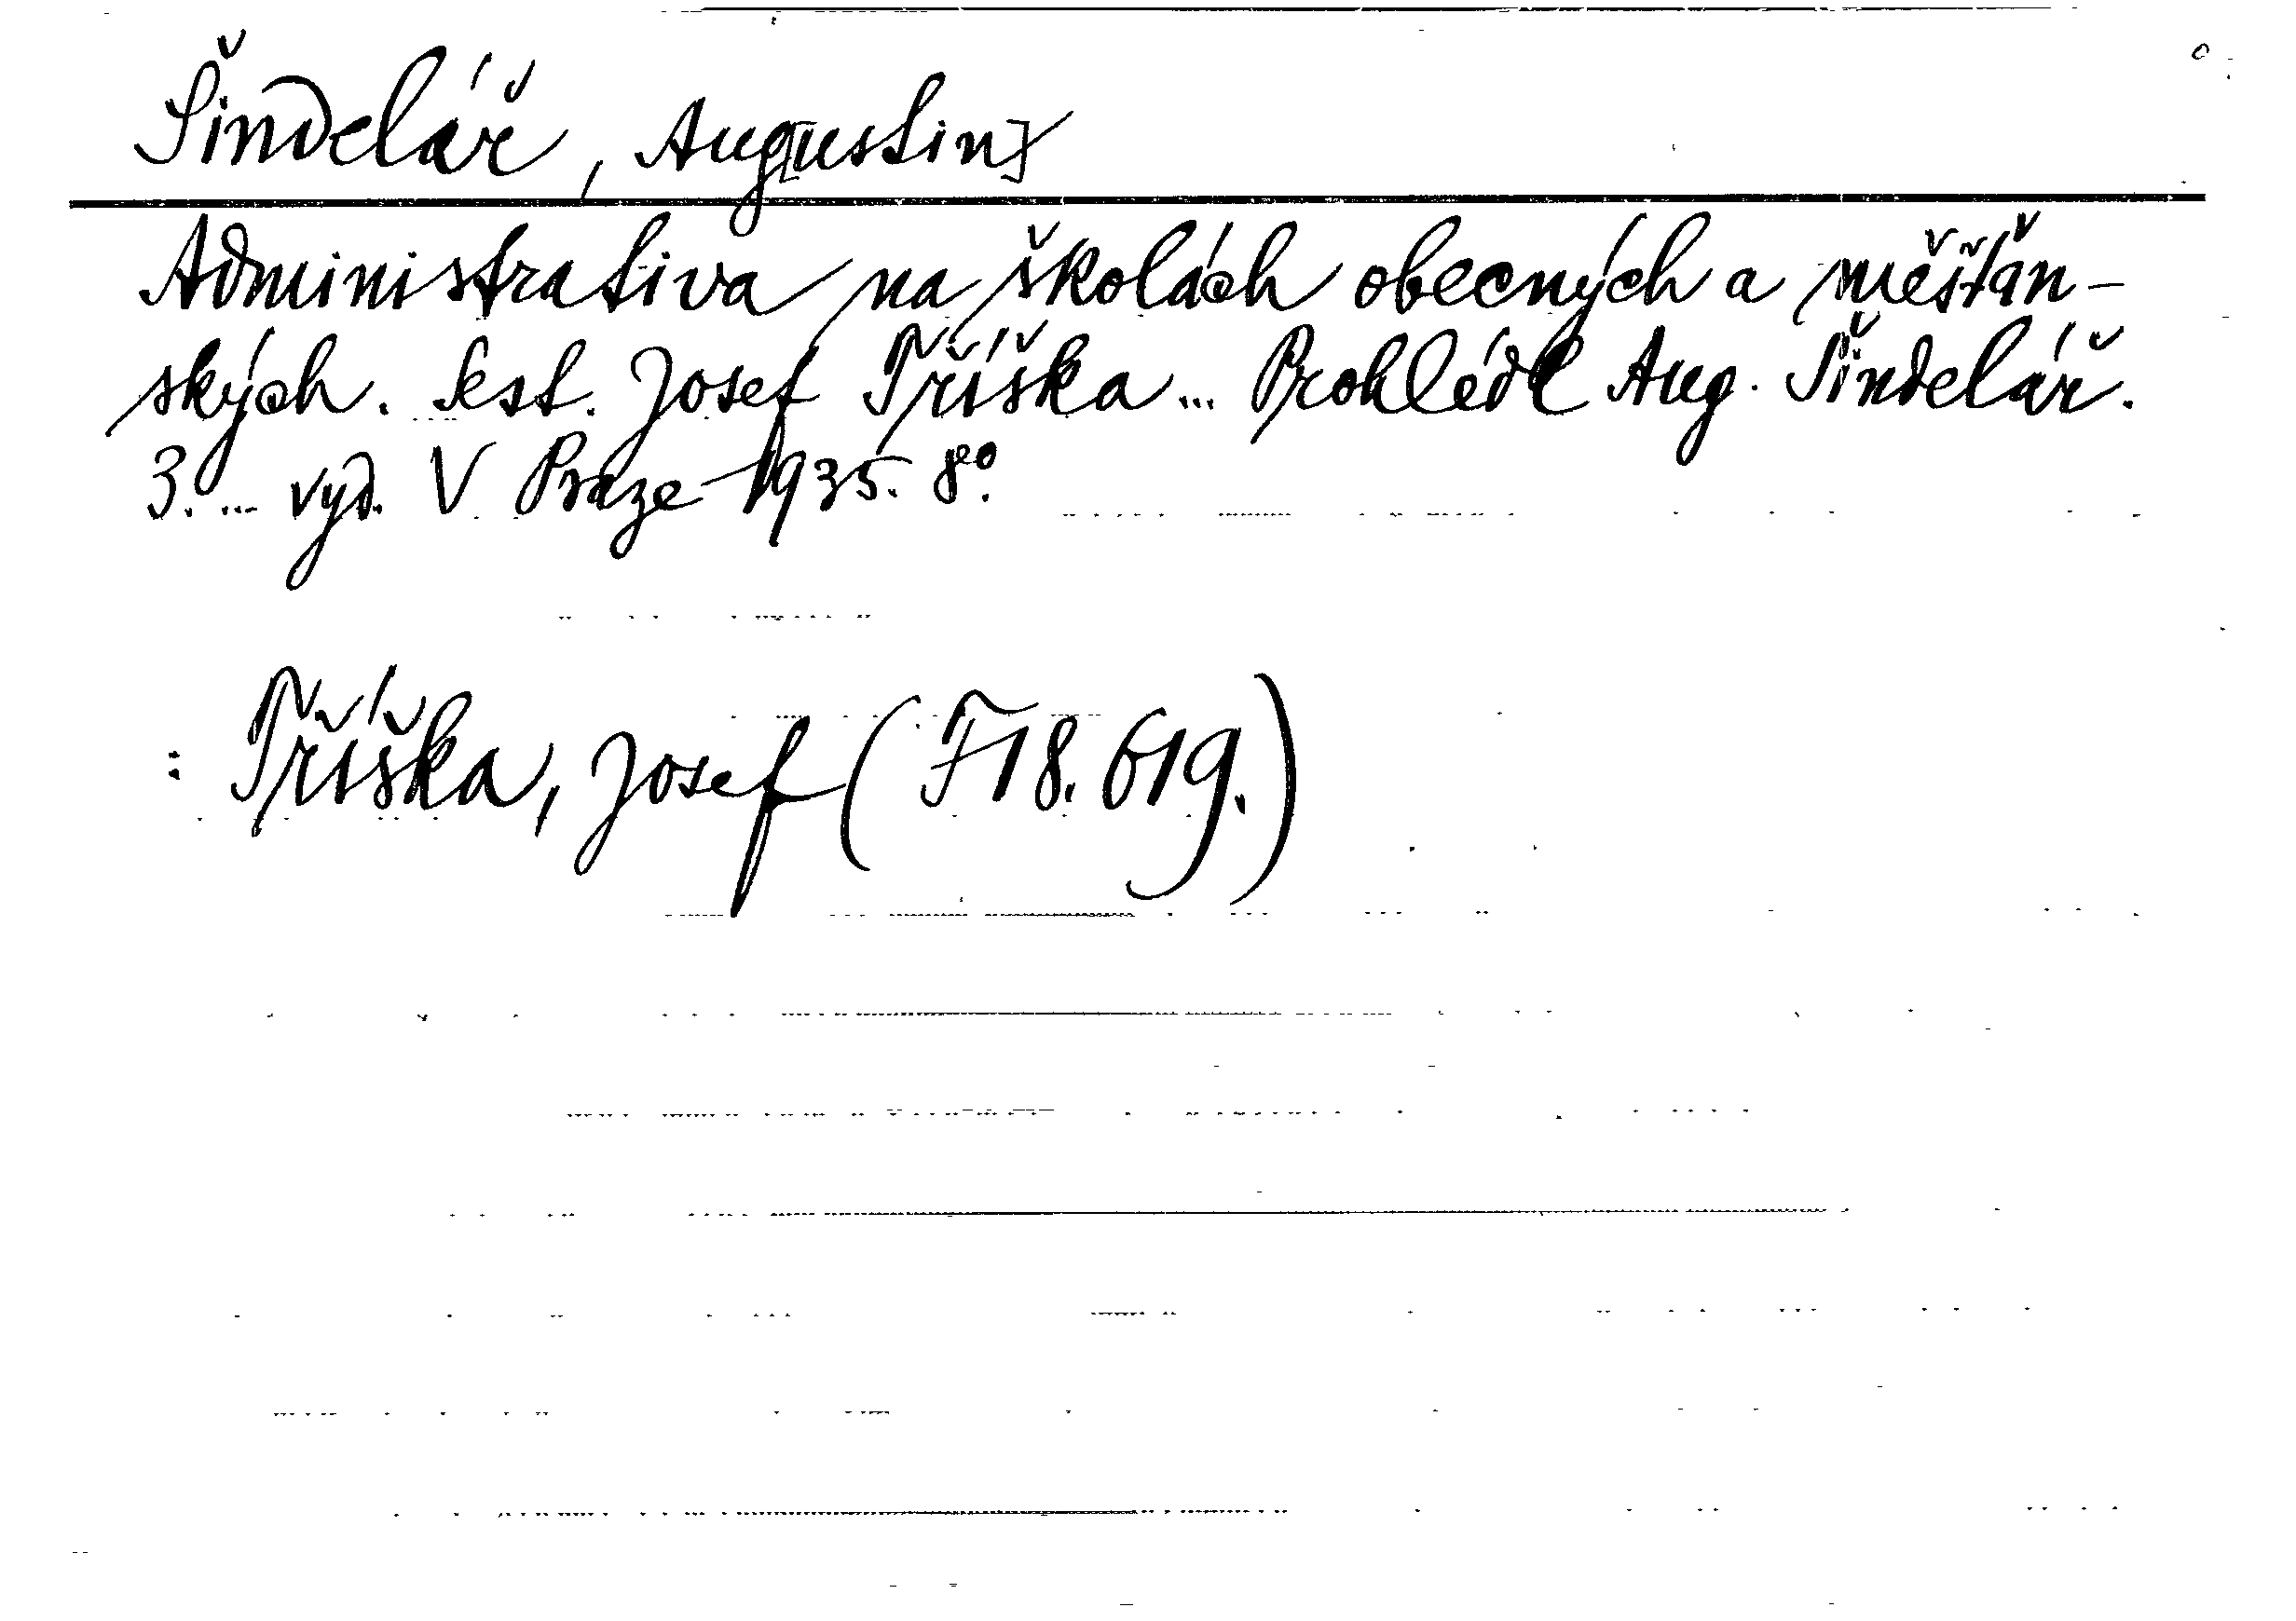 Šindelář, Aug[ustin]
Administrativa na školách obecných a měšťan-
ských. Sest. Josef Tříška... Prohlédl Aug. Šindelář.
3. ... vyd. V Praze 1935. 8°.
: Tříška, Josef (F 18.619.)